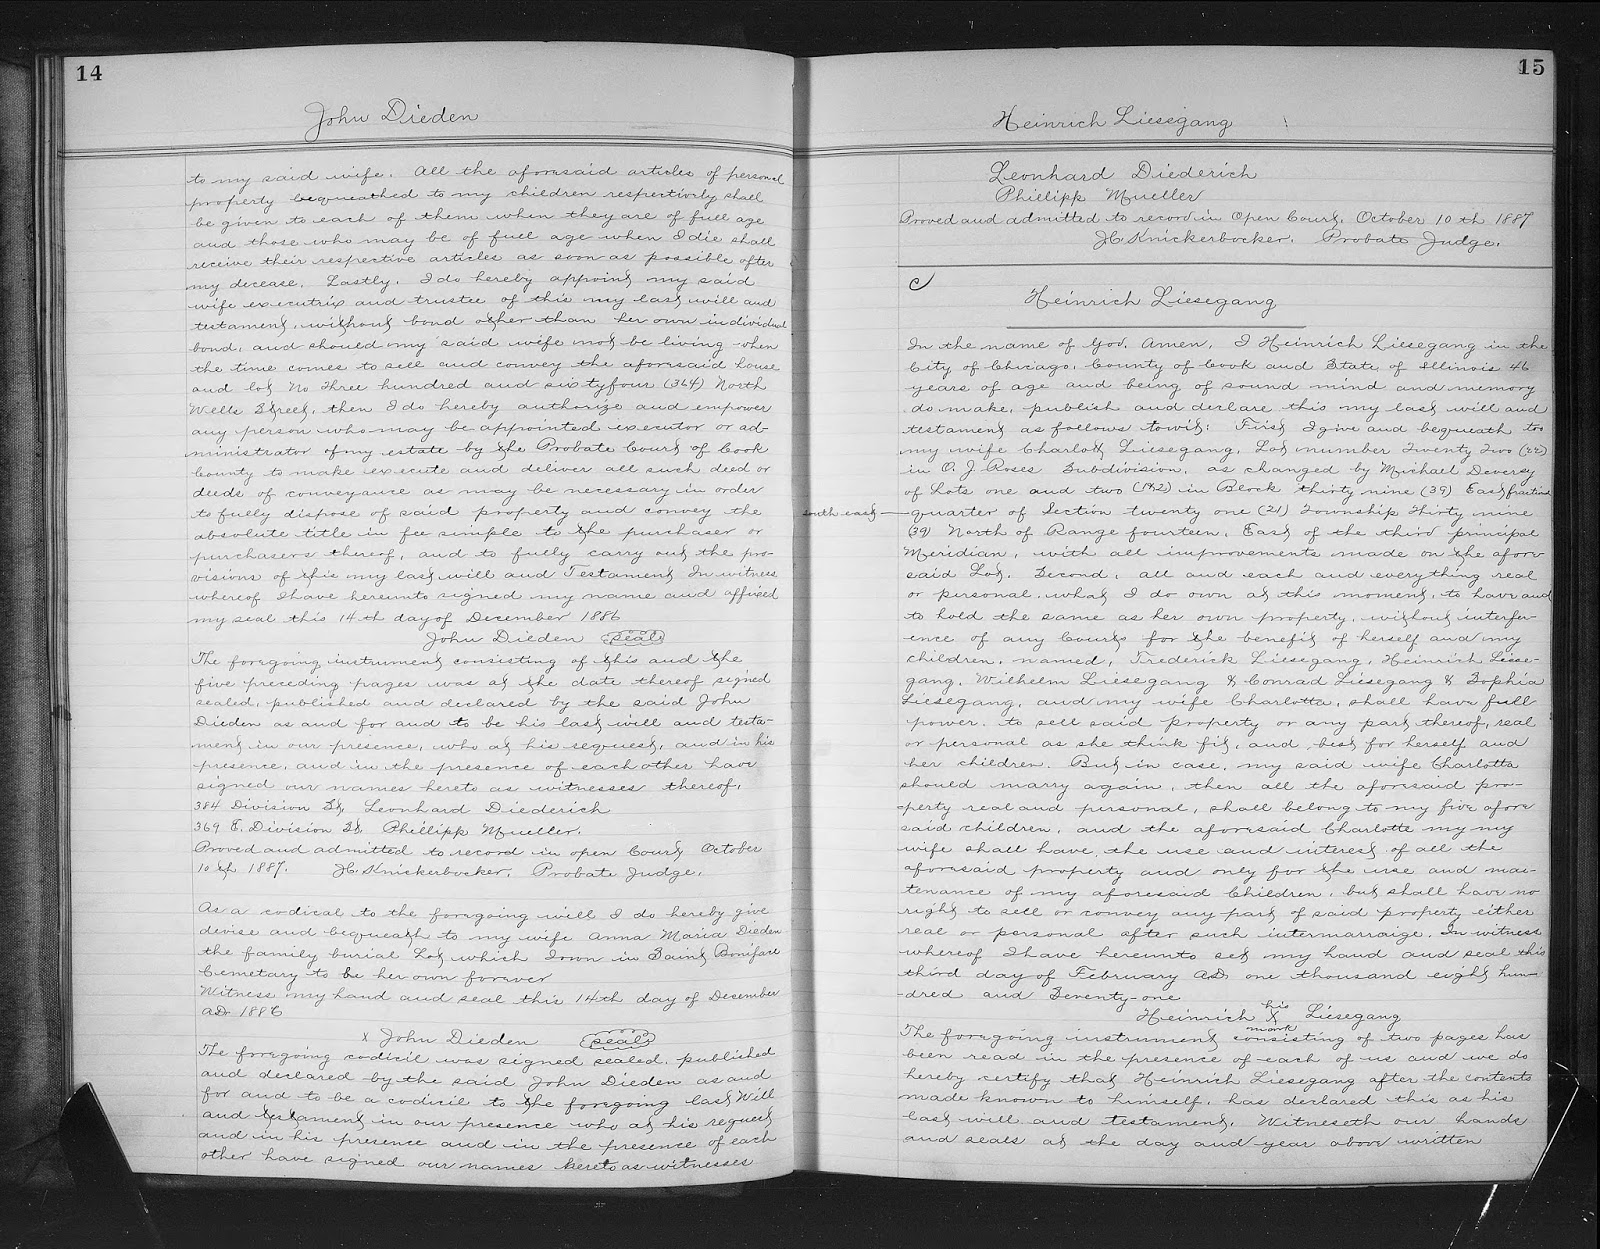 14
John Dieden
to my said wife. All the aforesaid articles of personal
property bequeathed to my children respectively shall
be given to each of them when they are of full age
and those who may be of full age when I die shall
receive their respective articles as soon as possible after
my decease. Lastly. I do hereby appoint my said
wife executrix and trustee of this my last will and
testament, without bond other than her own individual
bond, and should my said wife not be living when
the time comes to sell and convey the aforesaid house
and lot No Three hundred and sixtyfour (364) North
Wells Street, then I do hereby authorize and empower
any person who may be appointed executor or ad-
ministrator of my estate by the Probate Court of Cook
County to make execute and deliver all such deed or
deeds of conveyance as may be necessary in order
to fully dispose of said property and convey the
absolute title in fee simple to the purchaser or
purchasers thereof, and to fully carry out the pro-
visions of this my last will and Testament In witness
whereof I have hereunto signed my name and affixed
my seal this 14th day of December 1886
John Dieden seal
The foregoing instrument consisting of this and the
five preceding pages was at the date thereof signed
sealed, published and declared by the said John
Dieden as and for and to be his last will and testa-
ment in our presence, who at his request, and in his
presence, and in the presence of each other have
signed our names hereto as witnesses thereof.
384 Division St, Leonhard Diederich
369 E. Division St, Phillipp Mueller.
Proved and admitted to record in open Court October
10th 1887. JC. Knickerbocker. Probate Judge.
As a codical to the foregoing will I do hereby give
devise and bequeath to my wife Anna Maria Dieden
the family burial Lot which I own in Saint Boniface
Cemetary to be her own forever
Witness my hand and seal this 14th day of December
AD. 1886
x John Dieden seal
The foregoing codicil was signed sealed, published
and declared by the said John Dieden as and
for and to be a codicil to the foregoing last Will
and testament in our presence who at his request
and in his presence and in the presence of each
other have signed our names hereto as witnesses
15
Heinrich Liesegang
Leonhard Diederich
Phillipp Mueller
Proved and admitted to record in Open Court, October 10th 1887
JC. Knickerbocker. Probate Judge.
Heinrich Liesegang
In the name of God, Amen. I Heinrich Liesegang in the
City of Chicago, County of Cook and State of Illinois 46
years of age and being of sound mind and memory
do make, publish and declare this my last will and
testament as follows towit: First I give and bequeath too
my wife Charlott Liesegang, Lot number Twenty Two (22)
in O. J Roses Subdivision, as changed by Michael Deversy
of Lots one and two (1&2) in Block thirty nine (39) East fraction
south east quarter of Section twenty one (21) Township Thirty nine
(39) North of Range fourteen, East of the third principal
Meridian, with all improvements made on the afore
said Lot. Second, all and each and everything real
or personal, what I do own at this moment, to have and
to hold the same as her own property, without interfer-
ence of any Courts for the benefit of herself and my
children, named, Frederick Liesegang, Heinrich Liese-
gang, Wilhelm Liesegang & Conrad Liesegang & Sophia
Liesegang, and my wife Charlotta, shall have full
power, to sell said property or any part thereof, real
or personal as she think fit, and best for herself and
her children. But in case, my said wife Charlotta
should marry again, then all the aforesaid pro-
-perty real and personal, shall belong to my five afore
said children, and the aforesaid Charlotte my my
wife shall have, the use and interest of all the
aforesaid property and only for the use and main-
tenance of my aforesaid Children, but shall have no
right to sell or convey any part of said property either
real or personal after such intermarraige. In witness
whereof I have hereunto set my hand and seal this
third day of February A.D. one thousand eight hun-
-dred and Seventy-one
Heinrich his X mark Liesegang
The foregoing instrument consisting of two pages has
been read in the presence of each of us and we do
hereby certify that Heinrich Liesegang after the contents
made known to himself, has declared this as his
last will and testament. Witneseth our hands
and seals at the day and year above written